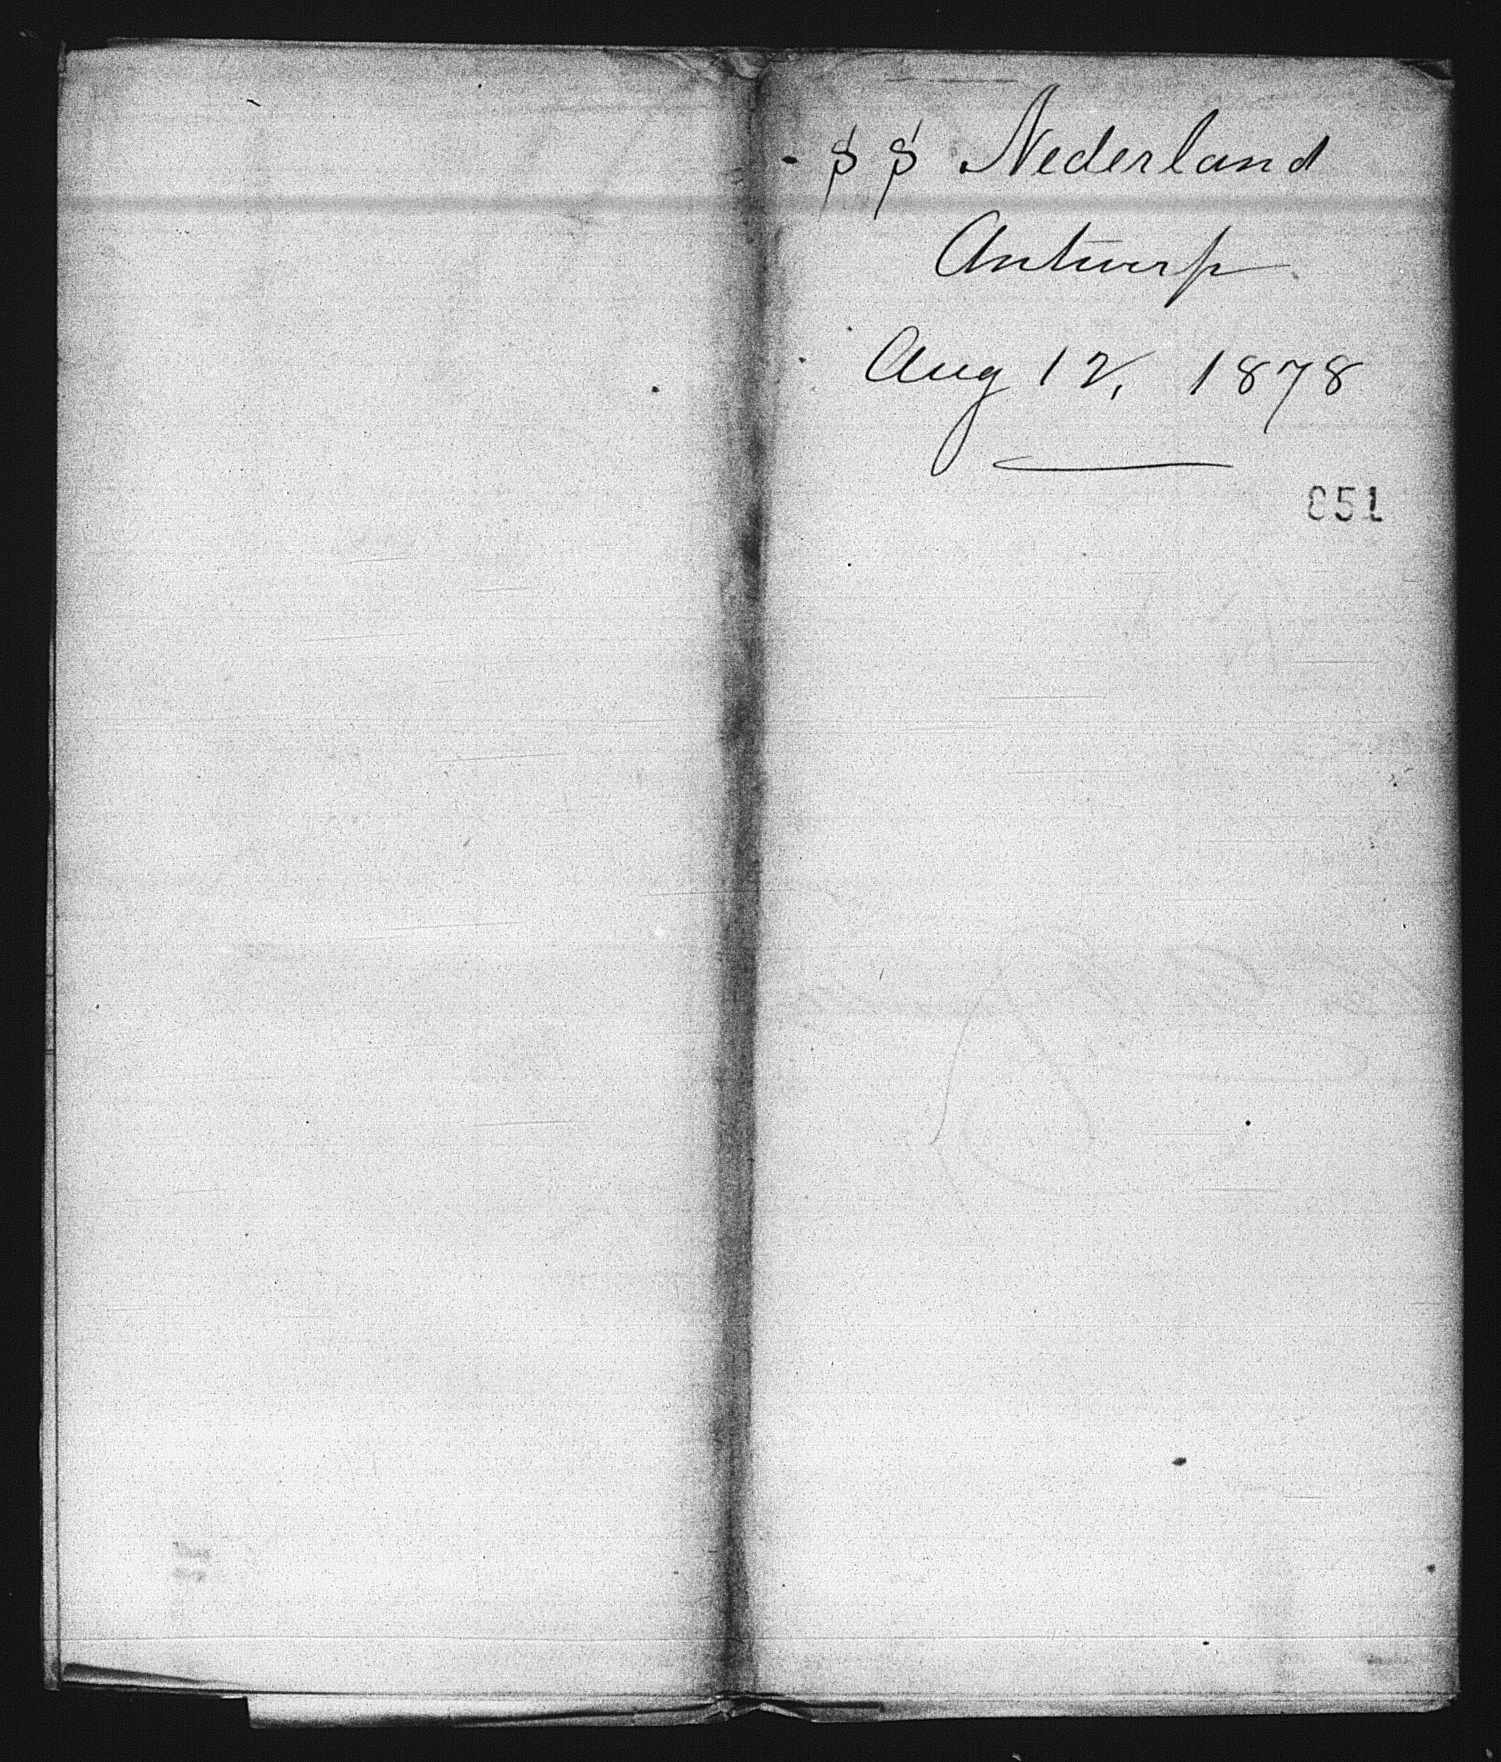 SS Nederland
Antwerp
Aug 12, 1878
851